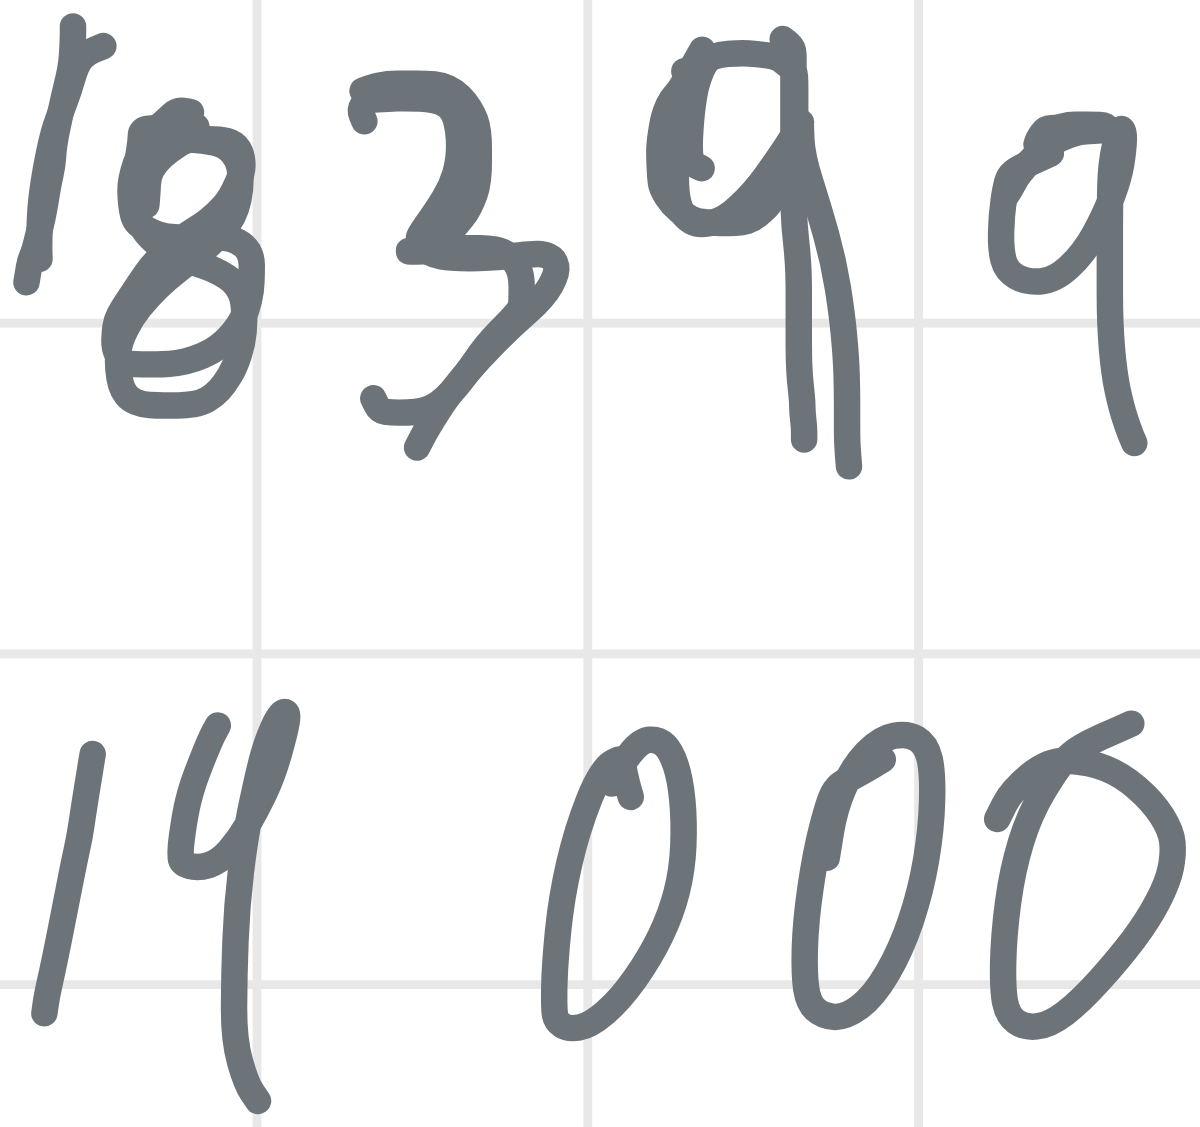 18399
14000